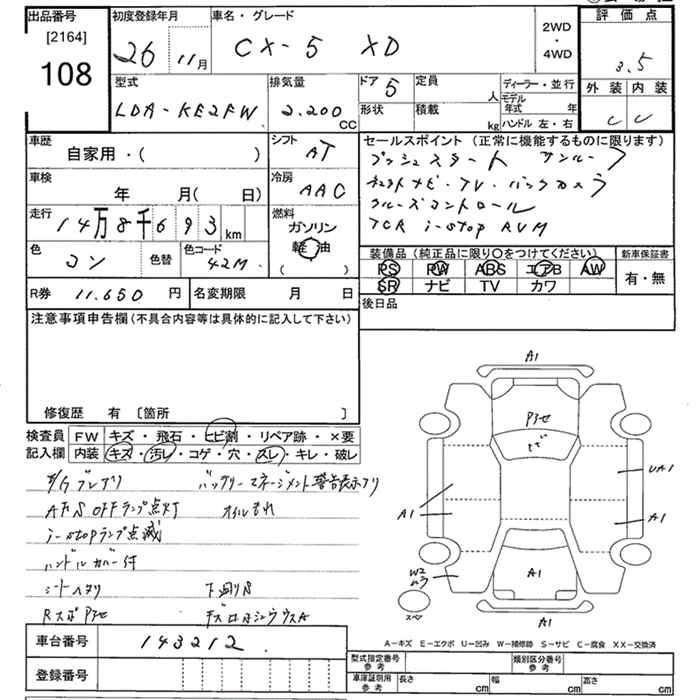 出品番号
[2164]
108
初度登録年月
26 11月
車名・グレード
CX-5 XD
2WD
・
4WD
評価点
3.5
外装 内装
C C
型式
LDA-KE2FW
排気量
2.200
CC
ドア 5
形状
定員
人
積載
kg
ディーラー・並行
モデル年式 年
ハンドル 左・右
車歴
自家用・( )
車検
年 月( 日)
走行
14万8千693km
色
コン
色替
色コード
42M
シフト
AT
冷房
AAC
燃料
ガソリン
軽油
( )
セールスポイント(正常に機能するものに限ります)
プッシュスタート サンルーフ
ナビ・TV・バックカメラ
クルーズコントロール
i-stop AVM
装備品(純正品に限り○をつけてください)
PS PW ABS エアB AW
SR ナビ TV カワ
新車保証書
有・無
後日品
R券 11.650 円
名変期限 月 日
注意事項申告欄(不具合内容等は具体的に記入して下さい)
修復歴 有 〔箇所 〕
検査員
記入欄
FW キズ・飛石・ヒビ割・リペア跡・×要
内装 キズ・汚レ・コゲ・穴・スレ・キレ・破レ
バッテリーマネージメント警告表示アリ
AFS OFFランプ点灯 オイルもれ
i-stopランプ点滅
ハンドルカバー付
シートヘタリ 下廻りS
A1
P3セ
A1
UA1
A1
W2
A1
スペア
A1
A-キズ E-エクボ U-凹み W-補修跡 S-サビ C-腐食 XX-交換済
車台番号 143212
登録番号
型式指定番号
参考
類別区分番号
参考
車庫証明用
参考
長さ cm 幅 cm 高さ cm